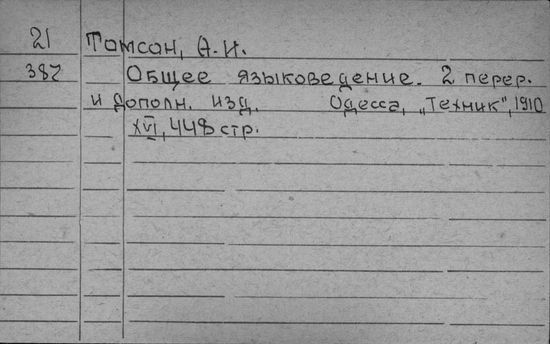 21 Томсон, А.И.
387 Общее языковедение. 2 перер.
и дополн. изд. Одесса, „Техник", 1910
XVI, 448 стр.